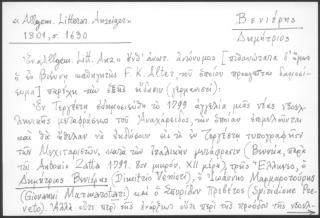 «Allgem. Litterar. Anzeiger»
1801, σ. 1630
Βενιέρης
Δημήτριος
Ἐν «Allgem. Litt. Anz.» ὑπ' ἀνωνύμου [πιθανώτατα δ' ὅμως
ὁ ἐν Βιέννῃ καθηγητὴς F. K. Alter, τοῦ ὁποίου προηγεῖται δημοσίευ-
μα] παρέχει τὴν ἑξῆς εἴδησιν (γερμανιστί):
Ἐν Τεργέστῃ ἐδημοσιεύθη τὸ 1799 ἀγγελία μιᾶς νέας νεοελ-
ληνικῆς μεταφράσεως τοῦ Ἀναχάρσιδος, τὴν ὁποίαν
καὶ θὰ ἐκδώσουν εἰς τὸ ἐν Τεργέστῃ τυπογραφεῖον
τῶν Μεχιταριστῶν, κατὰ τὴν ἰταλικὴν μετάφρασιν (Βενετία, παρὰ
τοῦ Antonio Zatta 1791. 8ον μικρόν. XII μέρη) τρεῖς Ἕλληνες, ὁ
Δημήτριος Βενιέρης (Dimitrio Venieri), ὁ Ἰωάννης Μαρμαροτούρης
(Giovanni Matmarotutri) καὶ ὁ Σπυρίδων Πρεβέτος (Spiridione Pre-
veto). Ἀλλὰ οὔτε περὶ τῆς ἐνάρξεως οὔτε περὶ τῆς προόδου τῆς